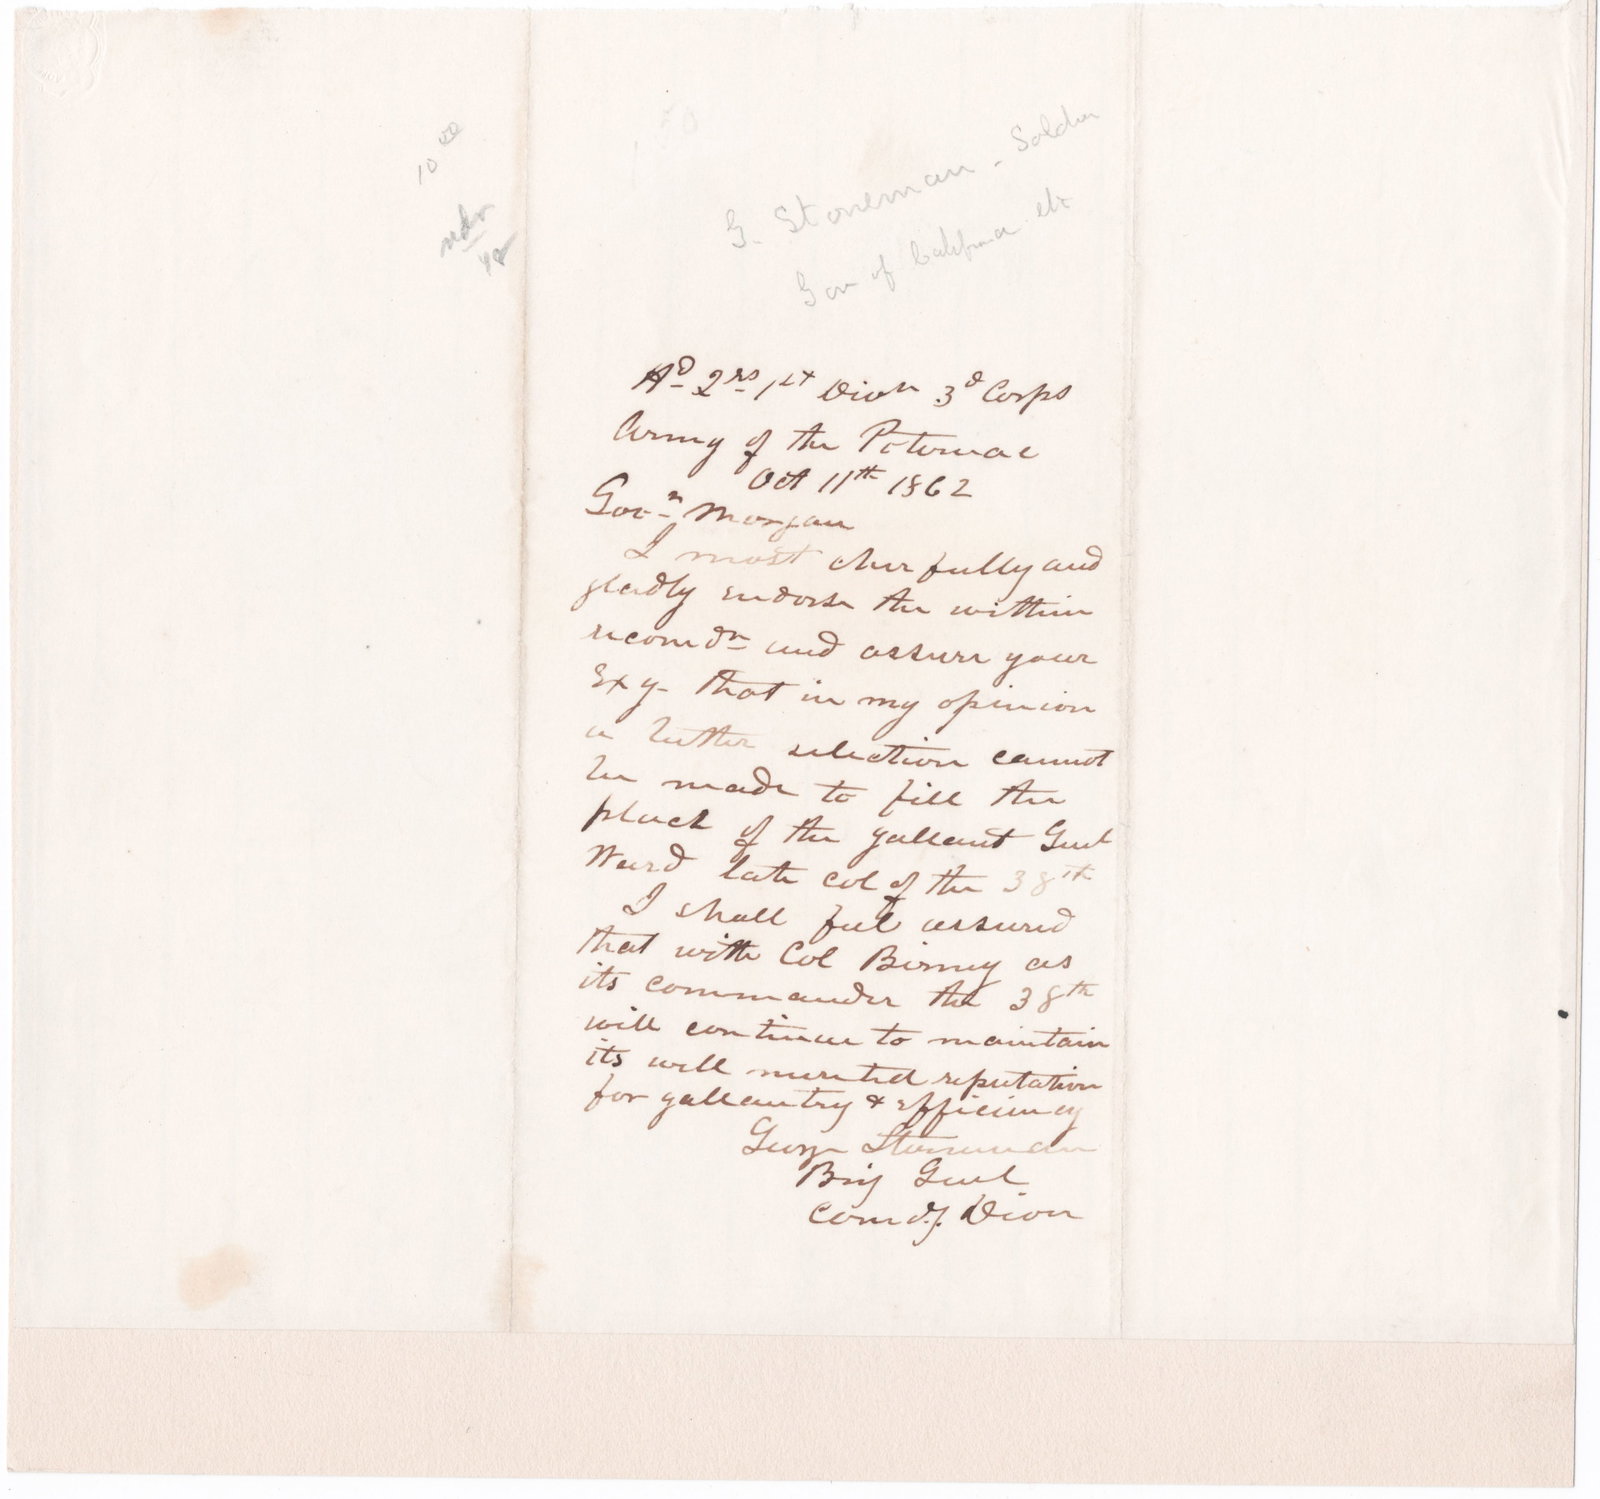 10 00
G. Stoneman - Soldier
Gov of California etc
Hd Qrs 1st Divn 3d Corps
Army of the Potomac
Oct 11th 1862
Govn Morgan
I most cheerfully and
gladly endorse the within
recomdn and assure your
Exy. that in my opinion
a better selection cannot
be made to fill the
place of the gallant Genl
Ward late Col of the 38th
I shall feel assured
that with Col Birney as
its commander the 38th
will continue to maintain
its well merited reputation
for gallantry & efficiency
George Stoneman
Brig Genl
Comdg. Divn